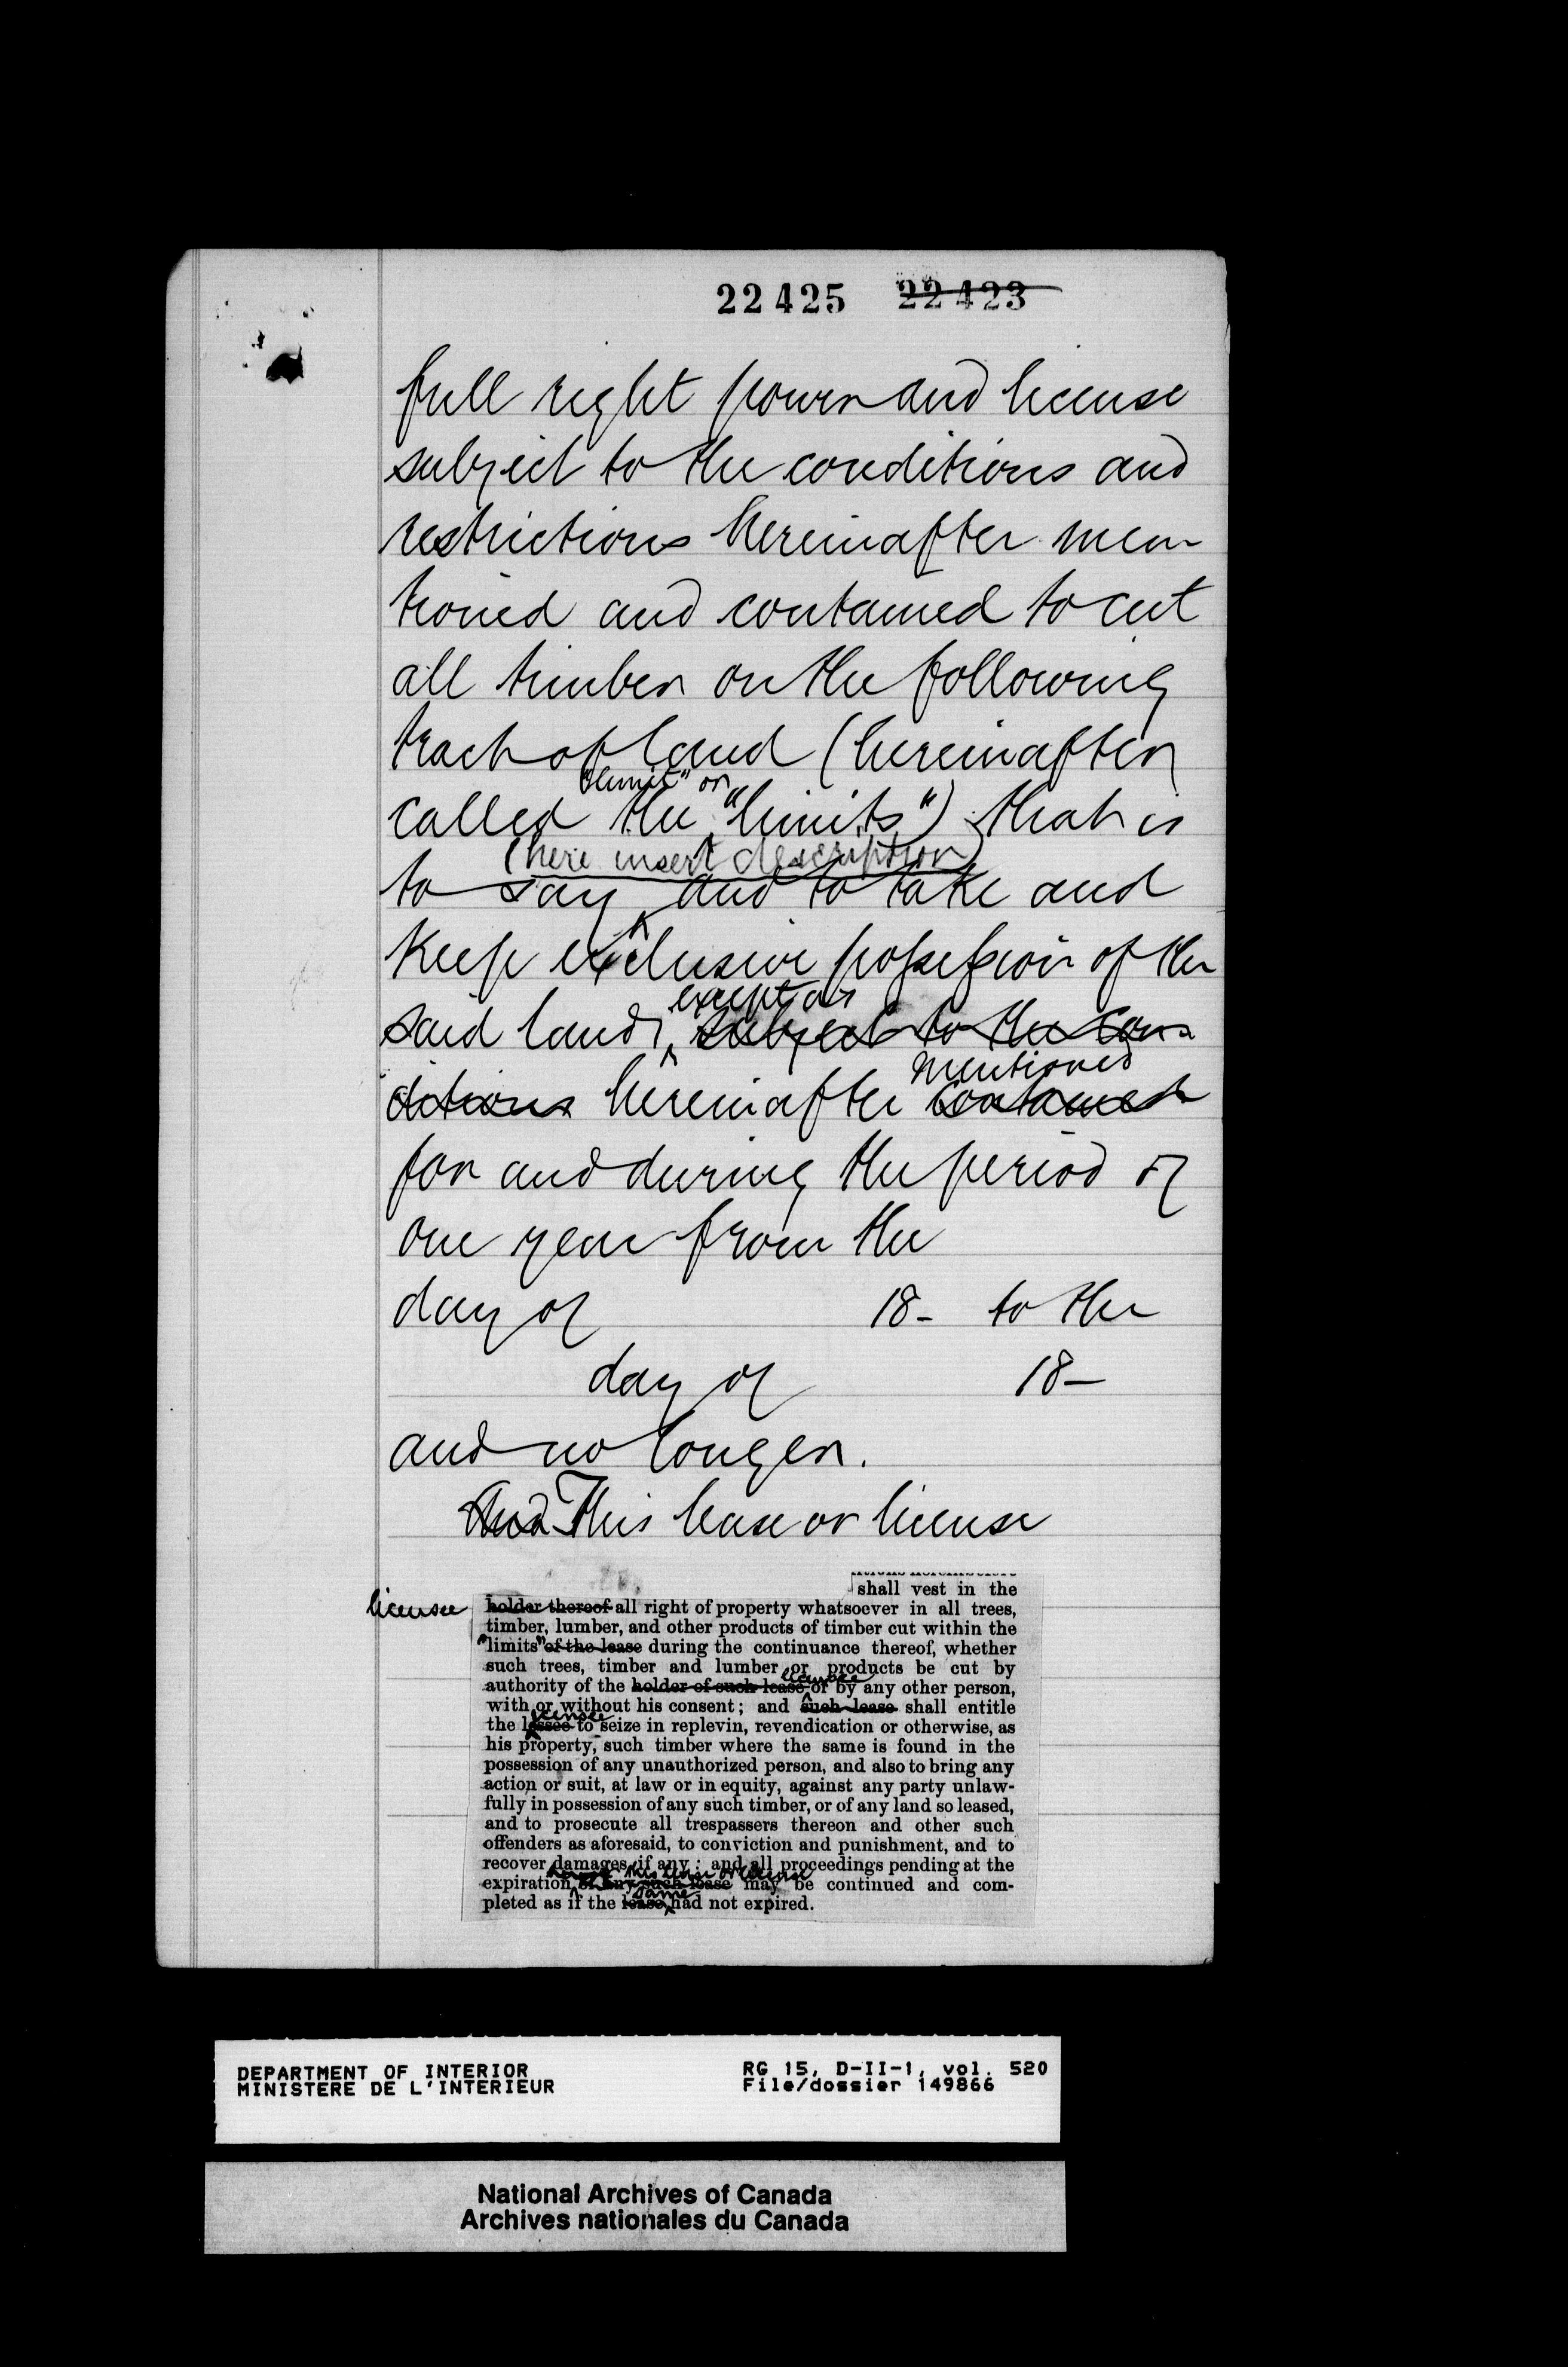 22425 22423
full right power and license
subject to the conditions and
restrictions hereinafter men
tioned and contained to cut
all timber on the following
tract of land (hereinafter
"limit" or
called the "limits") that is
(here insert description)
to say and to take and
keep exclusive possession of the
except as
said land, subject to the con
mentioned
ditions hereinafter contained
for and during the period of
one year from the
day of 18- to the
day of 18-
and no longer.
And This lease or license
shall vest in the
licensee holder thereof all right of property whatsoever in all trees,
timber, lumber, and other products of timber cut within the
"limits" of the lease during the continuance thereof, whether
such trees, timber and lumber or products be cut by
licensee
authority of the holder of such lease or by any other person,
with or without his consent; and such lease shall entitle
licensee
the lessee to seize in replevin, revendication or otherwise, as
his property, such timber where the same is found in the
possession of any unauthorized person, and also to bring any
action or suit, at law or in equity, against any party unlaw-
fully in possession of any such timber, or of any land so leased,
and to prosecute all trespassers thereon and other such
offenders as aforesaid, to conviction and punishment, and to
recover damages, if any; and all proceedings pending at the
this lease or license
expiration of any such lease may be continued and com-
same
pleted as if the lease had not expired.
DEPARTMENT OF INTERIOR RG 15, D-II-1, vol. 520
MINISTERE DE L'INTERIEUR File/dossier 149866
National Archives of Canada
Archives nationales du Canada